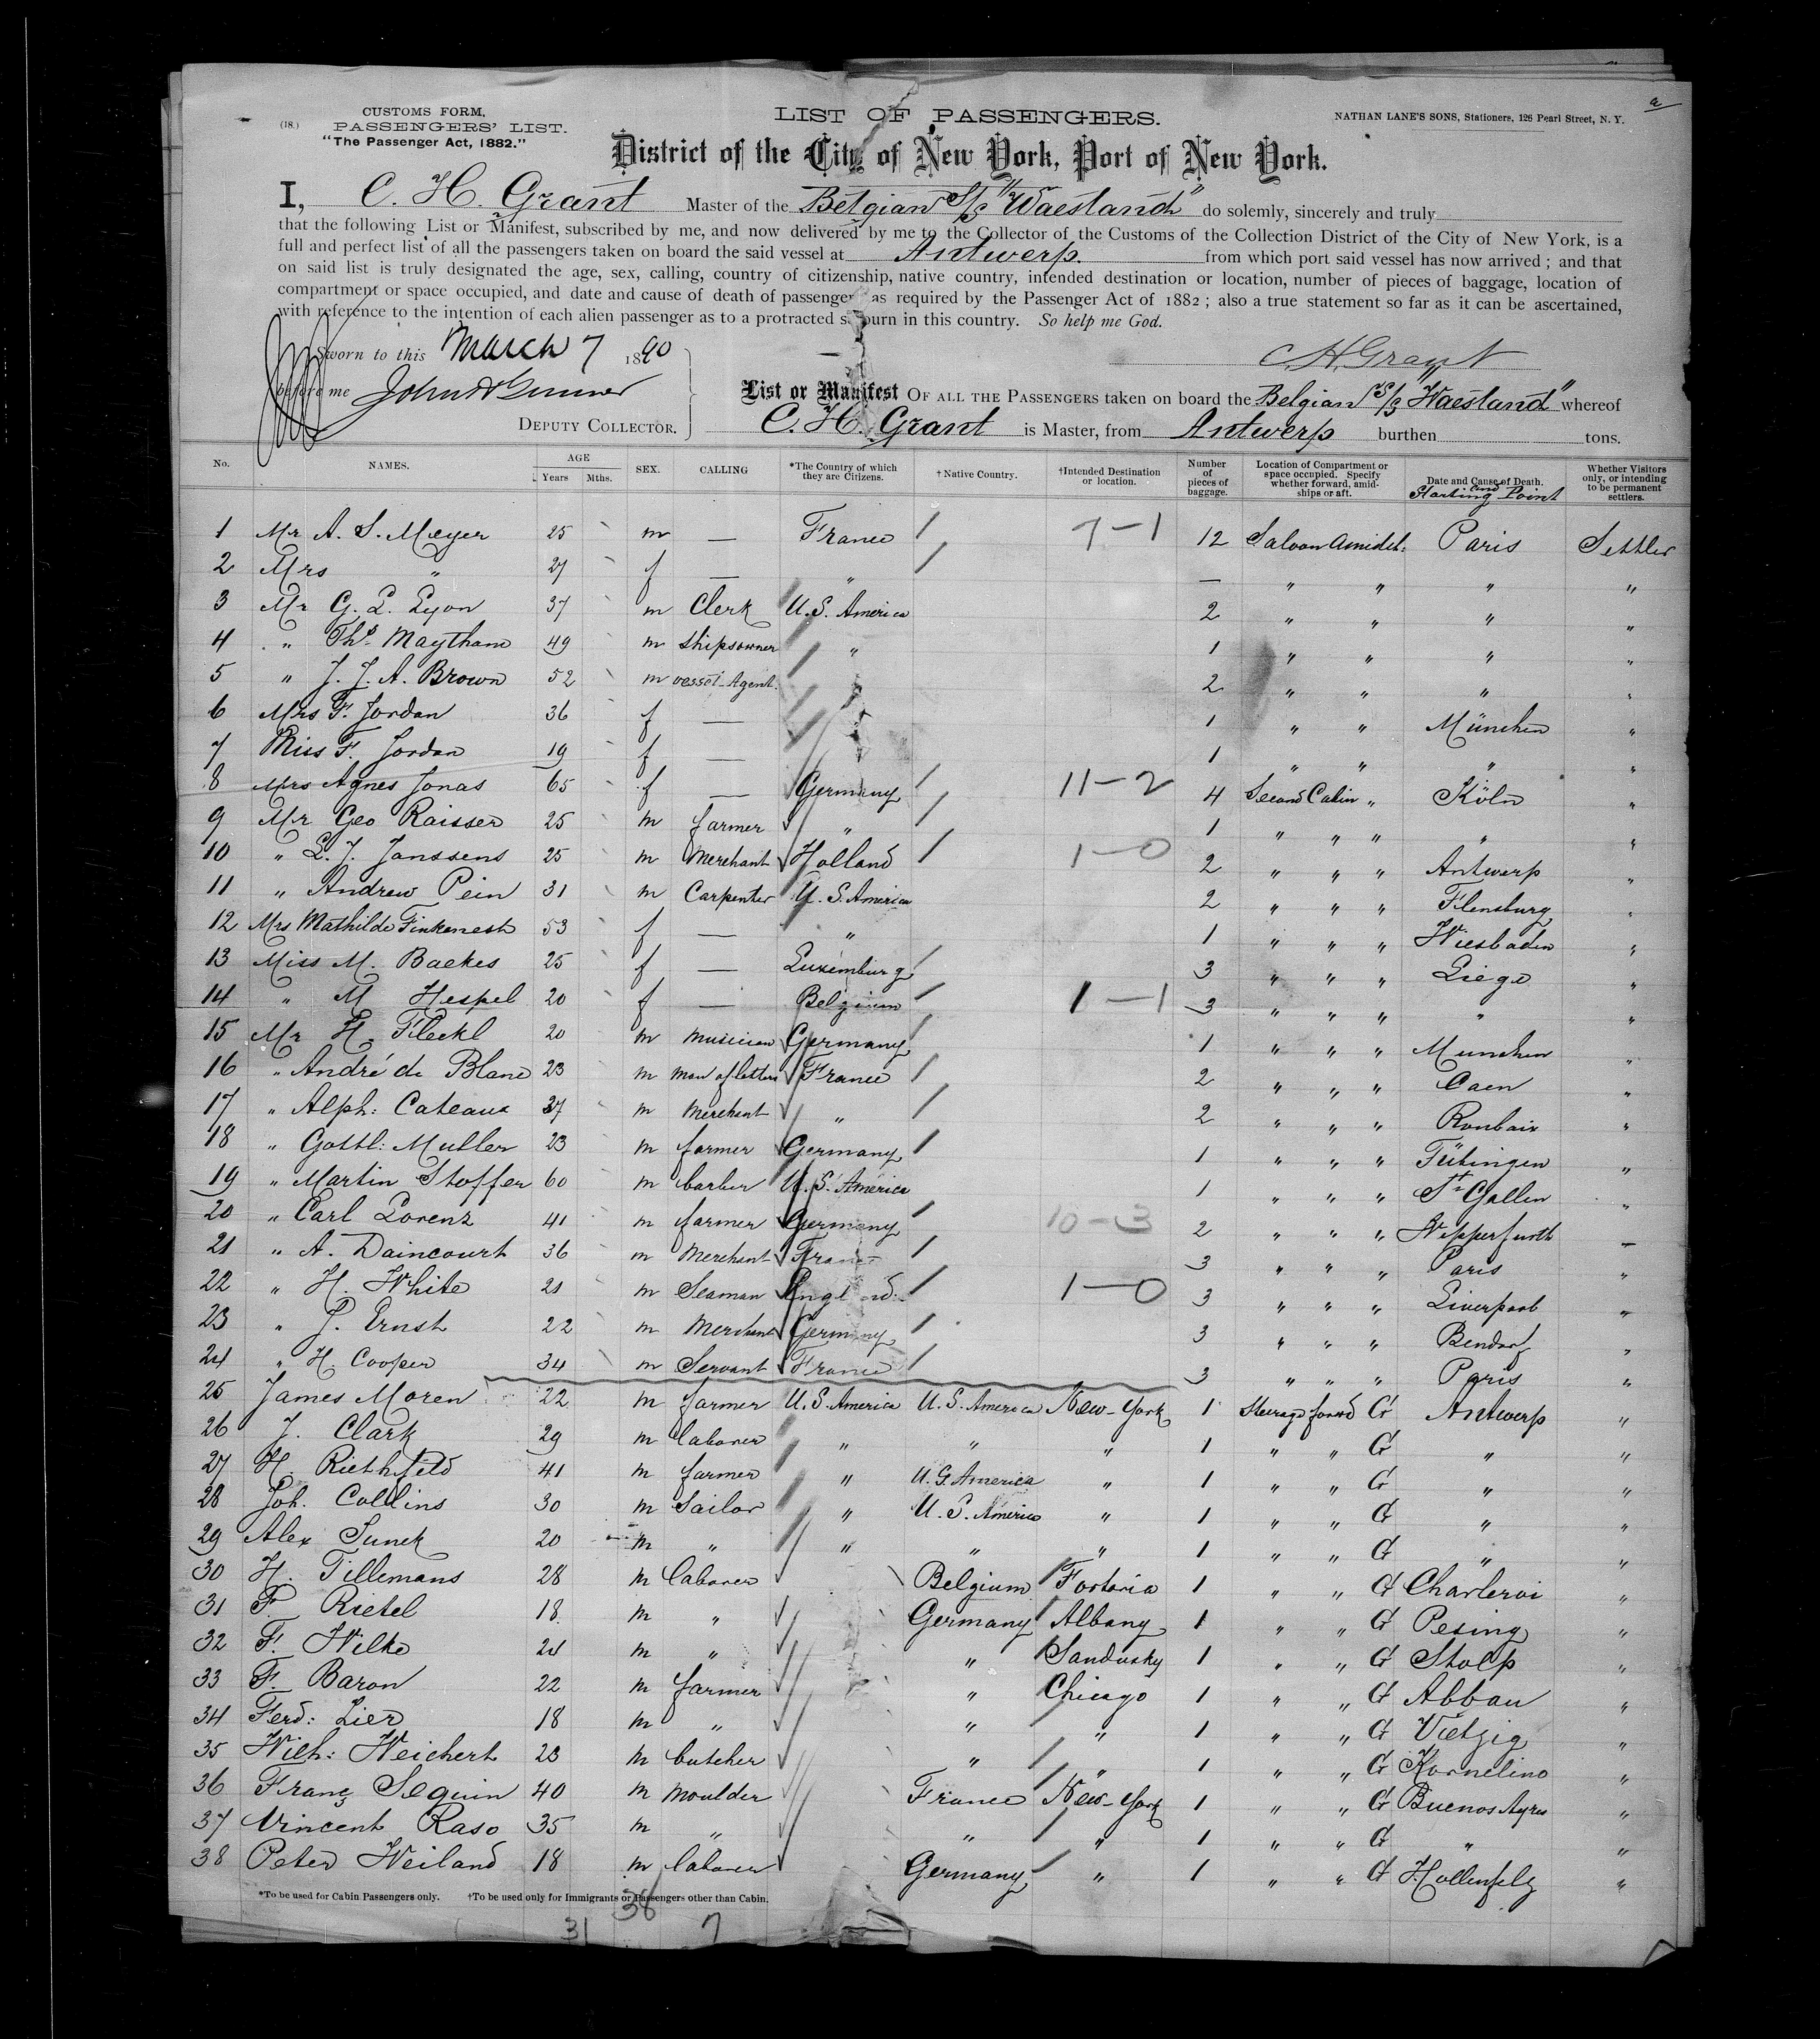 a
CUSTOMS FORM.
(18.) PASSENGERS' LIST.
"The Passenger Act, 1882."
LIST OF PASSENGERS.
NATHAN LANE'S SONS, Stationers, 126 Pearl Street, N. Y.
District of the City of New York, Port of New York.
I, C. H. Grant Master of the Belgian S/S "Waesland" do solemly, sincerely and truly
that the following List or Manifest, subscribed by me, and now delivered by me to the Collector of the Customs of the Collection District of the City of New York, is a
full and perfect list of all the passengers taken on board the said vessel at Antwerp. from which port said vessel has now arrived; and that
on said list is truly designated the age, sex, calling, country of citizenship, native country, intended destination or location, number of pieces of baggage, location of
compartment or space occupied, and date and cause of death of passenger as required by the Passenger Act of 1882; also a true statement so far as it can be ascertained,
with reference to the intention of each alien passenger as to a protracted sojourn in this country. So help me God.
Sworn to this March 7 1890
C. H. Grant
before me John
DEPUTY COLLECTOR.
List or Manifest OF ALL THE PASSENGERS taken on board the Belgian S/S "Waesland" whereof
C. H. Grant is Master, from Antwerp burthen tons.
No. NAMES. AGE Years Mths. SEX. CALLING *The Country of which they are Citizens. †Native Country. †Intended Destination or location. Number of pieces of baggage. Location of Compartment or space occupied. Specify whether forward, amidships or aft. Date and Cause of Death. and Starting Point Whether Visitors only, or intending to be permanent settlers.
1 Mr A. S. Meyer 25 m — France / 7-1 12 Saloon Amidsh: Paris Settler
2 Mrs " 27 f — " / — " " " "
3 Mr G. L. Lyon 37 m Clerk U.S. America 2 " " " "
4 " Ths. Maytham 49 m Shipsowner " 1 " " " "
5 " J. J. A. Brown 52 m vessel-Agent. 2 " " " "
6 Mrs F. Jordan 36 f — 1 " " München "
7 Miss F. Jordan 19 f — 1 " " " "
8 Mrs Agnes Jonas 65 f — Germany / 11-2 4 Second Cabin " Köln "
9 Mr Geo Raisser 25 m farmer " / 1 " " " " "
10 " L. J. Janssens 25 m Merchant Holland / 1-0 2 " " " Antwerp "
11 " Andrew Pein 31 m Carpenter U. S. America 2 " " " Flensburg "
12 Mrs Mathilde Finkenesh 53 f — " 1 " " " Wiesbaden "
13 Miss M. Backes 25 f — Luxemburg / 3 " " " Liege "
14 " M Hespel 20 f — Belgium / 1-1 3 " " " " "
15 Mr H. Fleckl 20 m musician Germany / 1 " " " Munchen "
16 " André de Blanc 23 m man of letters France / 2 " " " Caen "
17 " Alph: Cateaux 37 m Merchant " / 2 " " " Roubaix "
18 " Gottl: Muller 23 m farmer Germany / 1 " " " Tübingen "
19 " Martin Stoffer 60 m barber U. S. America 1 " " " St Gallen "
20 " Carl Lorenz 41 m farmer Germany / 10-3 2 " " " Wipperfurth "
21 " A. Daincourt 36 m Merchant France / 3 " " " Paris "
22 " H. White 21 m Seaman England / 1-0 3 " " " Liverpool "
23 " J. Ernst 22 m Merchant Germany / 3 " " " Bendorf "
24 " H. Cooper 34 m Servant France / 3 " " " Paris "
25 James Moren 22 m farmer U. S. America U. S. America New-York 1 Steerage forwd G Antwerp "
26 J. Clark 29 m laborer " " " 1 " " G " "
27 H. Riethfeld 41 m farmer " U. S. America " 1 " " G " "
28 Joh. Collins 30 m Sailor " U. S. America " 1 " " G " "
29 Alex Sunck 20 m " " " " 1 " " G " "
30 H. Tillemans 28 m laborer Belgium Fostoria 1 " " G Charleroi "
31 F. Rietel 18 m " Germany Albany 1 " " G Pesing "
32 F. Wilke 24 m " " Sandusky 1 " " G Stolp "
33 F. Baron 22 m farmer " Chicago 1 " " G Abbau "
34 Ferd: Lier 18 m " " " 1 " " G Vietzig "
35 Wilh: Weichert 23 m butcher " " 1 " " G Kornelino "
36 Franç Seguin 40 m moulder France New-York 1 " " G Buenos Ayres "
37 Vincent Raso 35 m " " " 1 " " G " "
38 Peter Weiland 18 m laborer Germany " 1 " " G Hollenfelz "
*To be used for Cabin Passengers only. †To be used only for Immigrants or Passengers other than Cabin.
38
31 7